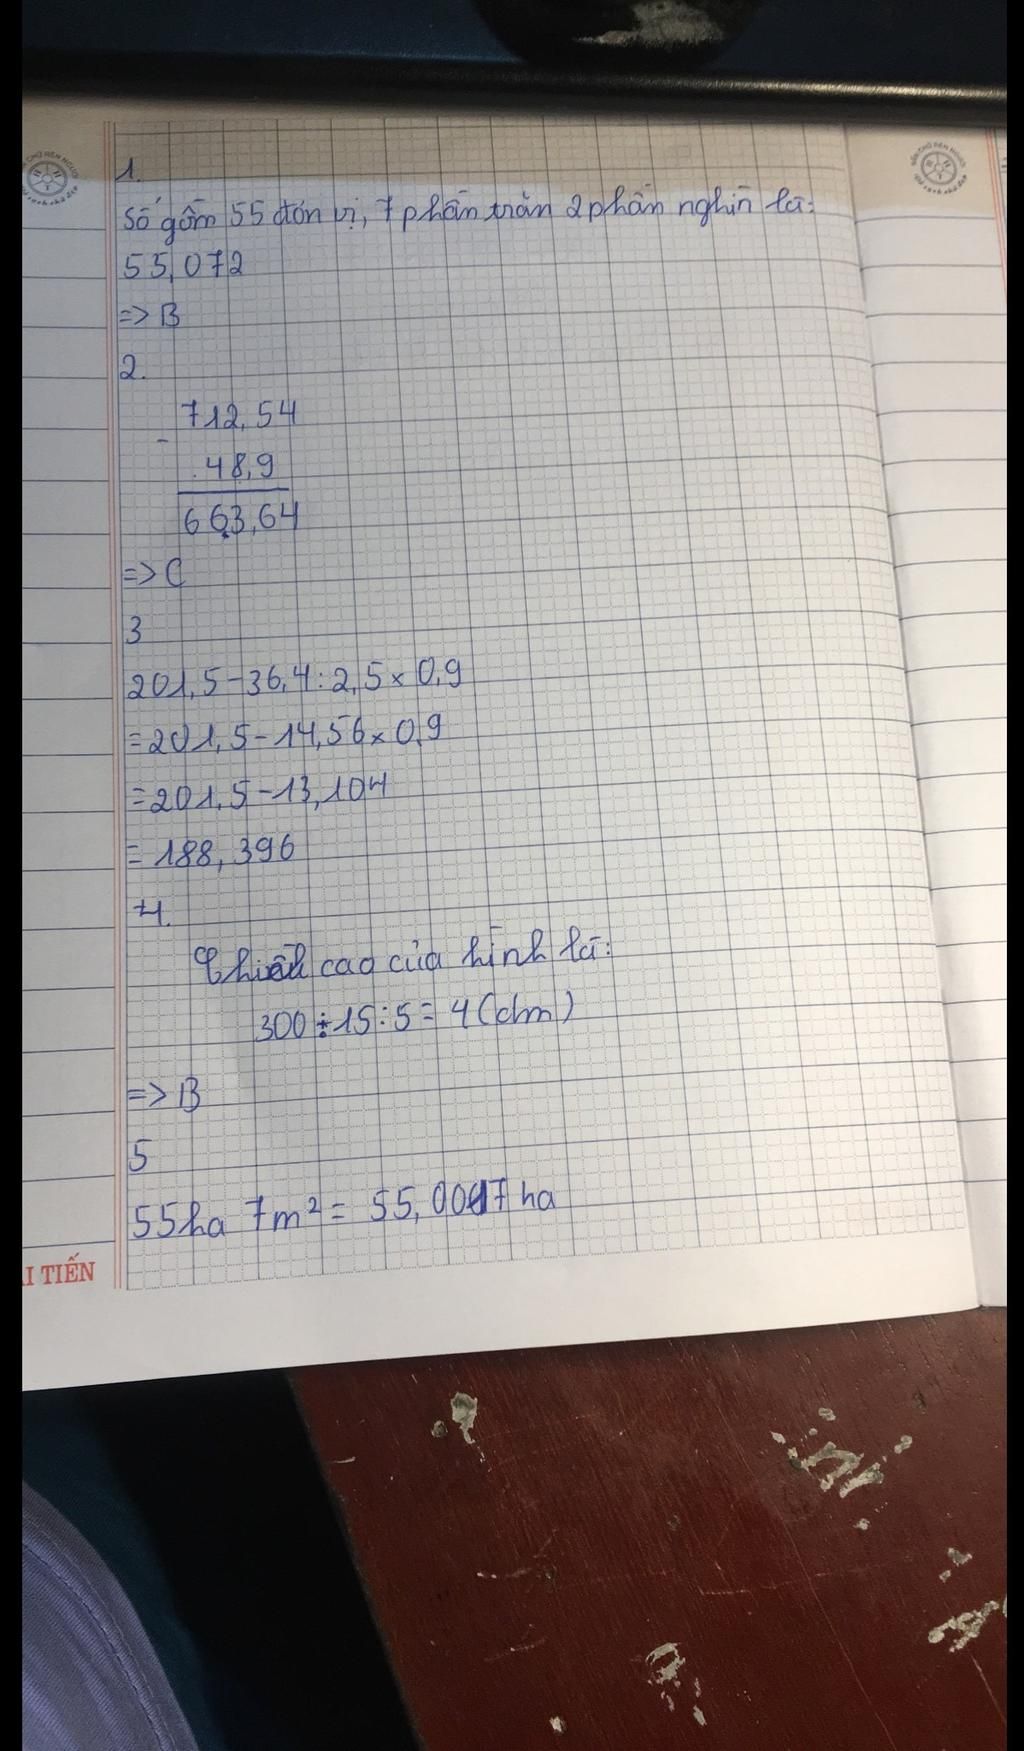 1.
Số gồm 55 đơn vị, 7 phần trăm 2 phần nghìn là:
55,072
=> B
2.
712,54
-
48,9
663,64
=> C
3
201,5-36,4:2,5×0,9
=201,5-14,56×0,9
=201,5-13,104
=188,396
4.
Chiều cao của hình là:
300:15:5=4(dm)
=> B
5
55ha 7m²= 55,0007ha
I TIẾN